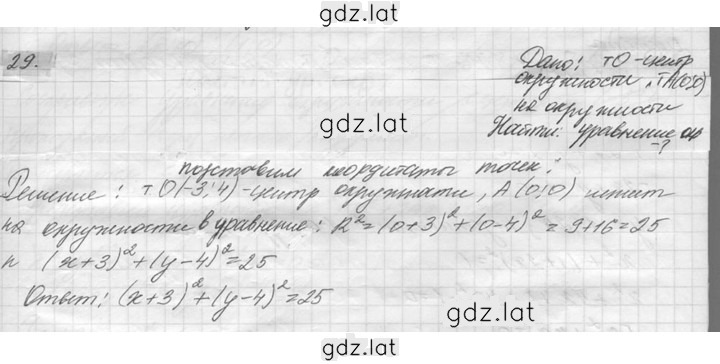 gdz.lat
29.
Дано: тО-центр
окружности, тА(0;0)
на окружности
gdz.lat
Найти: уравнение окр
-?
подставим координаты точек:
Решение: тО(-3;4)-центр окружности, А(0;0) лежит
на окружности в уравнение: R²=(0+3)²+(0-4)²=9+16=25
и (x+3)²+(y-4)²=25
Ответ: (x+3)²+(y-4)²=25
gdz.lat
gdz.lat